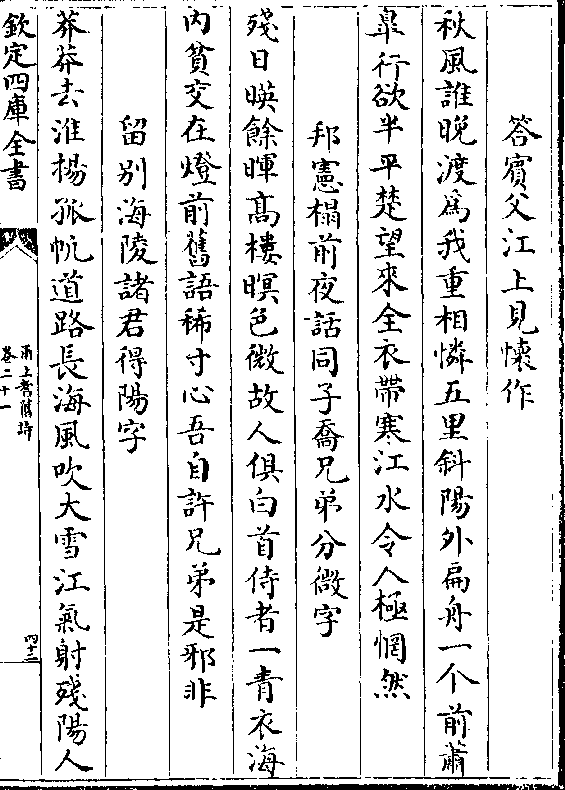 答賔父江上見懐作
秋風誰晚渡為我重相憐五里斜陽外扁舟一个前蕭
臯行欲半平楚望來全衣帶寒江水令人極惘然
邦憲榻前夜話同子喬兄弟分微字
殘日暎餘暉髙樓暝色微故人俱白首侍者一青衣海
内貧交在燈前舊語稀寸心吾自許兄弟是邪非
留别海陵諸君得陽字
莽莽去淮揚孤帆道路長海風吹大雪江氣射殘陽人
欽定四庫全書
甬上耆舊詩
卷二十一
四十二